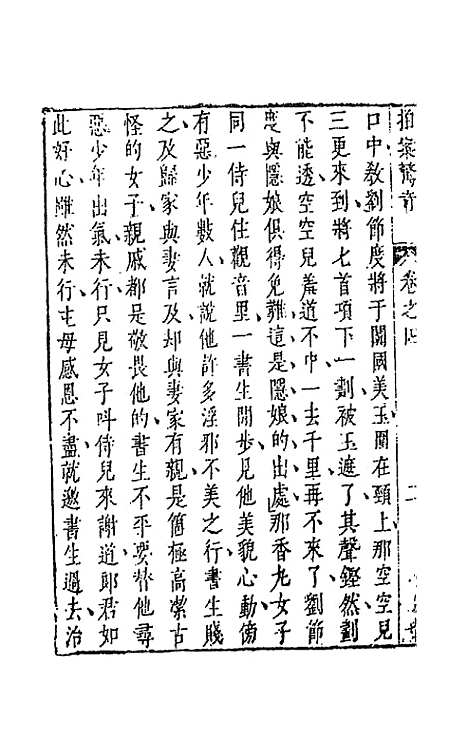 拍案驚奇 卷之四 二
口中教劉節度將于闐國美玉圍在頸上那空空兒
三更來到將匕首項下一劃被玉遮了其聲鏗然劃
不能透空空兒羞道不中一去千里再不來了劉節
度與隱娘俱得免難這是隱娘的出處那香丸女子
同一侍兒住觀音里一書生閒步見他美貌心動傍
有惡少年數人就說他許多淫邪不美之行書生賤
之及歸家與妻言及却與妻家有親是箇極高潔古
怪的女子親戚都是敬畏他的書生不平要替他尋
惡少年出氣未行只見女子呌侍兒來謝道郎君如
此好心雖然未行主母感恩不盡就邀書生過去治